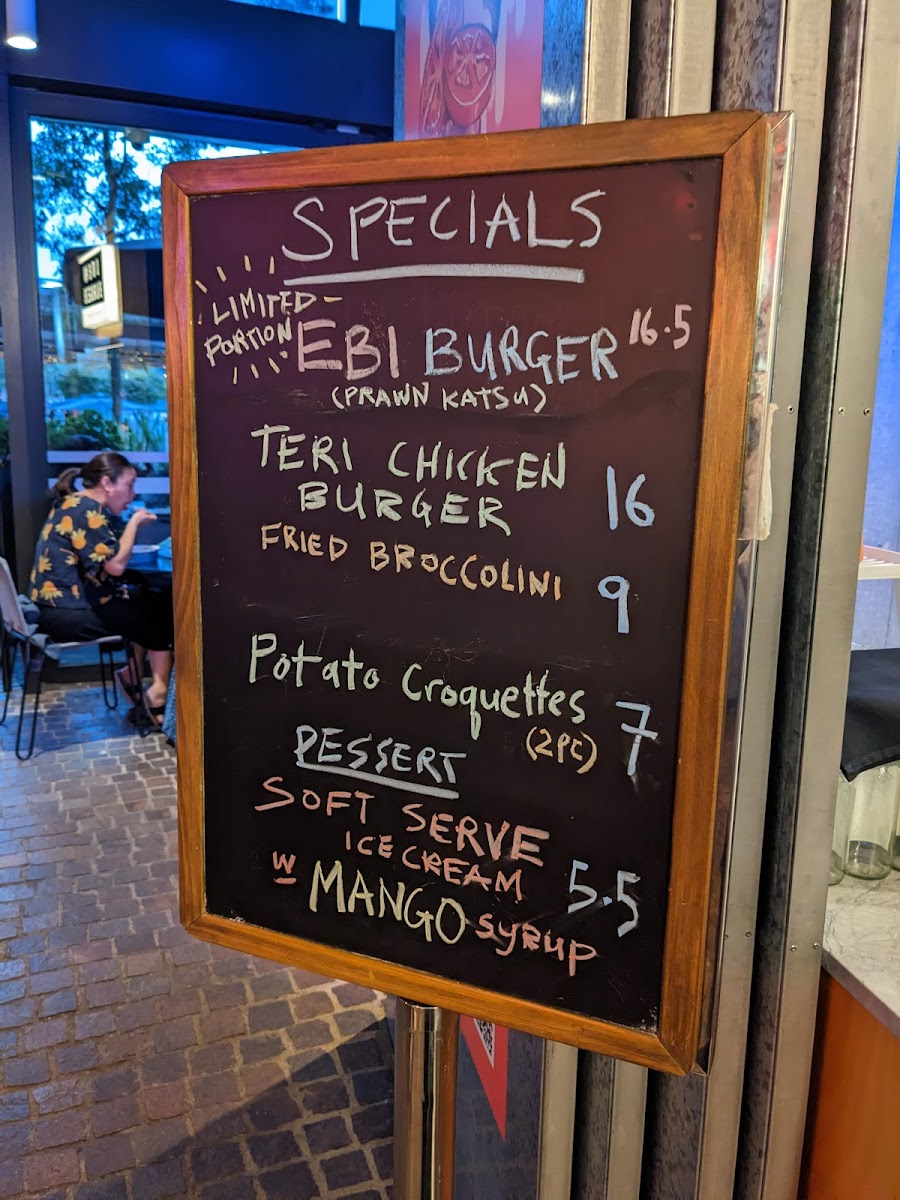 SPECIALS
LIMITED
PORTION
EBI BURGER 16.5
(PRAWN KATSU)
TERI CHICKEN
BURGER 16
FRIED BROCCOLINI 9
Potato Croquettes
(2PC) 7
DESSERT
SOFT SERVE
ICE CREAM 5.5
W MANGO SYRUP